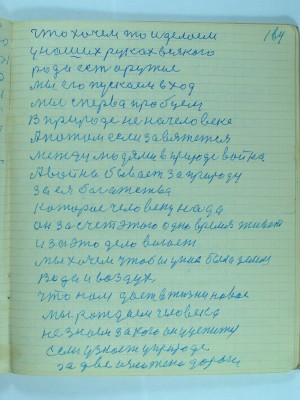 что хочем то и делаем
184
у наших руках всякого
рода ест оружие
мы его пускаем в ход
мы сперва пробуем
В природе не на человеке
А потом если завяжется
между людями в природе война
А война бывает за природу
за ея багатства
которое человеку нада
он за счет этого одно время живет
и за это дело воюет
мы хочем чтобы у нас была земля
Вода и воздух,
что нам дает в жизни новое
мы рождаем человека
не знаем за кого он уцепится
если узнает у природе
за две
дороги